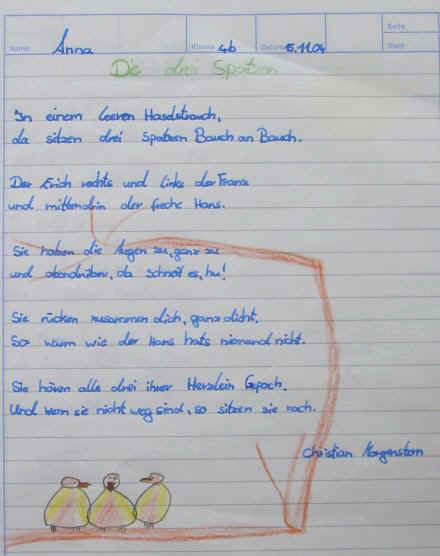 Name Anna Klasse 4b Datum 15.11.04 Seite
Blatt
Die drei Spatzen
In einem leeren Haselstrauch,
da sitzen drei Spatzen Bauch an Bauch.
Der Erich rechts und links der Franz
und mittendrin der freche Hans.
Sie haben die Augen zu, ganz zu
und obendrüber, da schneit es, hu!
Sie rücken zusammen dich, ganz dicht.
So warm wie der Hans hats niemand nicht.
Sie hören alle drei ihrer Herzlein Gepoch.
Und wenn sie nicht weg sind, so sitzen sie noch.
Christian Morgenstern